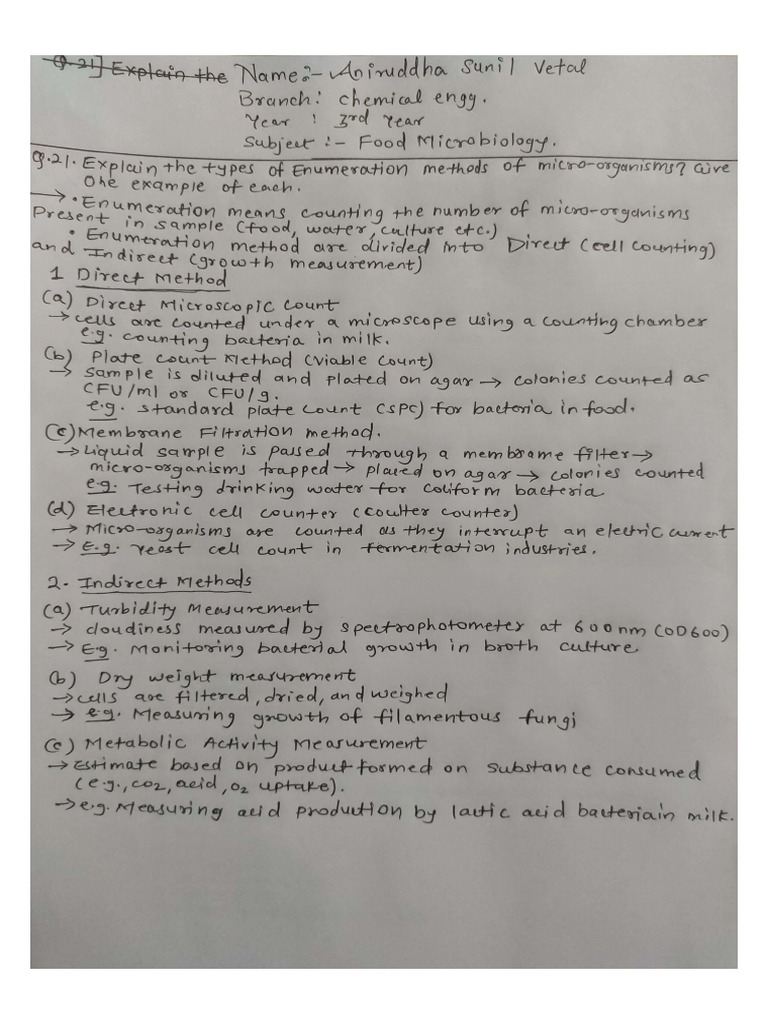 Q.21] Explain the Name:- Aniruddha Sunil Vetal
Branch: chemical engg.
Year : 3rd Year
Subject :- Food Microbiology.
Q.21. Explain the types of Enumeration methods of micro-organisms? Give
One example of each.
→ • Enumeration means counting the number of micro-organisms
Present in sample (food, water, culture etc.)
• Enumeration method are divided into Direct (cell counting)
and Indirect (growth measurement)
1 Direct Method
(a) Direct Microscopic Count
→ cells are counted under a microscope using a counting chamber
e.g. counting bacteria in milk.
(b) Plate count Method (viable count)
→ sample is diluted and plated on agar → colonies counted as
CFU/ml or CFU/g.
e.g. standard plate count (SPC) for bacteria in food.
(c) Membrane Filtration method.
→ Liquid sample is passed through a membrame filter →
micro-organisms trapped → placed on agar → colonies counted
e.g. Testing drinking water for coliform bacteria
(d) Electronic cell counter (coulter counter)
→ Micro-organisms are counted as they interrupt an electric current
→ E.g. Yeast cell count in fermentation industries.
2. Indirect Methods
(a) Turbidity Measurement
→ cloudiness measured by spectrophotometer at 600nm (OD600)
→ E.g. Monitoring bacterial growth in broth culture
(b) Dry weight measurement
→ cells are filtered, dried, and weighed
→ e.g. Measuring growth of filamentous fungi
(c) Metabolic Activity Measurement
→ Estimate based on product formed on substance consumed
(e.g., CO2, acid, O2 uptake).
→ e.g. Measuring acid production by lactic acid bacteriain milk.